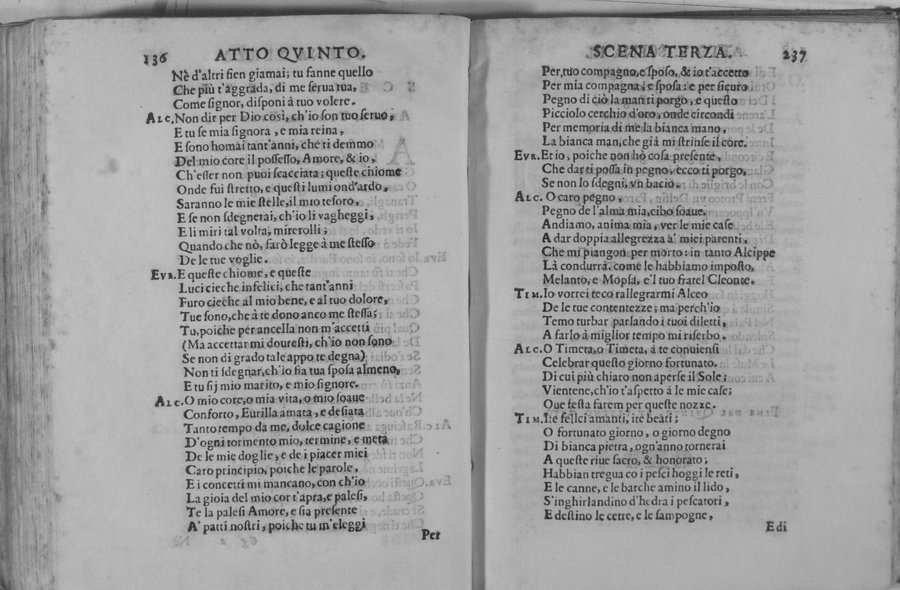 136 ATTO QVINTO.
Nè d'altri sien giamai; tu sanne quello
Che più t'aggrada, di me serua tua,
Come signor, disponi à tuo volere.
ALC. Non dir per Dio così, ch'io son tuo seruo,
E tu se mia signora, e mia reina,
E sono homai tant'anni, che ti demmo
Del mio core il possesso, Amore, & io,
Ch'esser non puoi scacciata; queste chiome
Onde fui stretto, e questi lumi ond'ardo,
Saranno le mie stelle, il mio tesoro,
E se non sdegnerai, ch'io li vagheggi,
E li miri tal volta, mirerolli;
Quando che nò, farò legge à me stesso
De le tue voglie.
EVR. E queste chiome, e queste
Luci cieche infelici, che tant'anni
Furo cieche al mio bene, e al tuo dolore,
Tue sono, che à te dono anco me stessa;
Tu, poiche per ancella non m'accetti
(Ma accettar mi douresti, ch'io non sono
Se non di grado tale appo te degna)
Non ti sdegnar, ch'io sia tua sposa almeno,
E tu sij mio marito, e mio signore.
ALC. O mio core, o mia vita, o mio soaue
Conforto, Eurilla amata, e desiata
Tanto tempo da me, dolce cagione
D'ogni tormento mio, termine, e meta
De le mie doglie, e de i piacer miei
Caro principio, poiche le parole,
E i concetti mi mancano, con ch'io
La gioia del mio cor t'apra, e palesi,
Te la palesi Amore, e sia presente
A' patti nostri, poiche tu m'eleggi
Per
SCENA TERZA. 237
Per tuo compagno, e sposo, & io t'accetto
Per mia compagna, e sposa: e per sicuro
Pegno di ciò la man ti porgo, e questo
Picciolo cerchio d'oro, onde circondi
Per memoria di me la bianca mano,
La bianca man, che già mi strinse il core.
EVR. Et io, poiche non hò cosa presente,
Che dar ti possa in pegno, ecco ti porgo,
Se non lo sdegni, vn bacio.
ALC. O caro pegno,
Pegno de l'alma mia, cibo soaue.
Andiamo, anima mia, ver le mie case
A dar doppia allegrezza a' miei parenti,
Che mi piangon per morto: in tanto Alcippe
Là condurrà, come le habbiamo imposto,
Melanto, e Mopsa, e'l tuo fratel Cleonte.
TIM. Io vorrei teco rallegrarmi Alceo
De le tue contentezze; ma perch'io
Temo turbar parlando i tuoi diletti,
A farlo à miglior tempo mi riserbo.
ALC. O Timeta, o Timeta, à te conuiensi
Celebrar questo giorno fortunato,
Di cui più chiaro non aperse il Sole;
Vientene, ch'io t'aspetto à le mie case;
Oue festa farem per queste nozze.
TIM. Ite felici amanti, ite beati;
O fortunato giorno, o giorno degno
Di bianca pietra, ogn'anno tornerai
A queste riue sacro, & honorato;
Habbian tregua co i pesci hoggi le reti,
E le canne, e le barche amino il lido,
S'inghirlandino d'hedra i pescatori,
E destino le cetre, e le sampogne,
E di